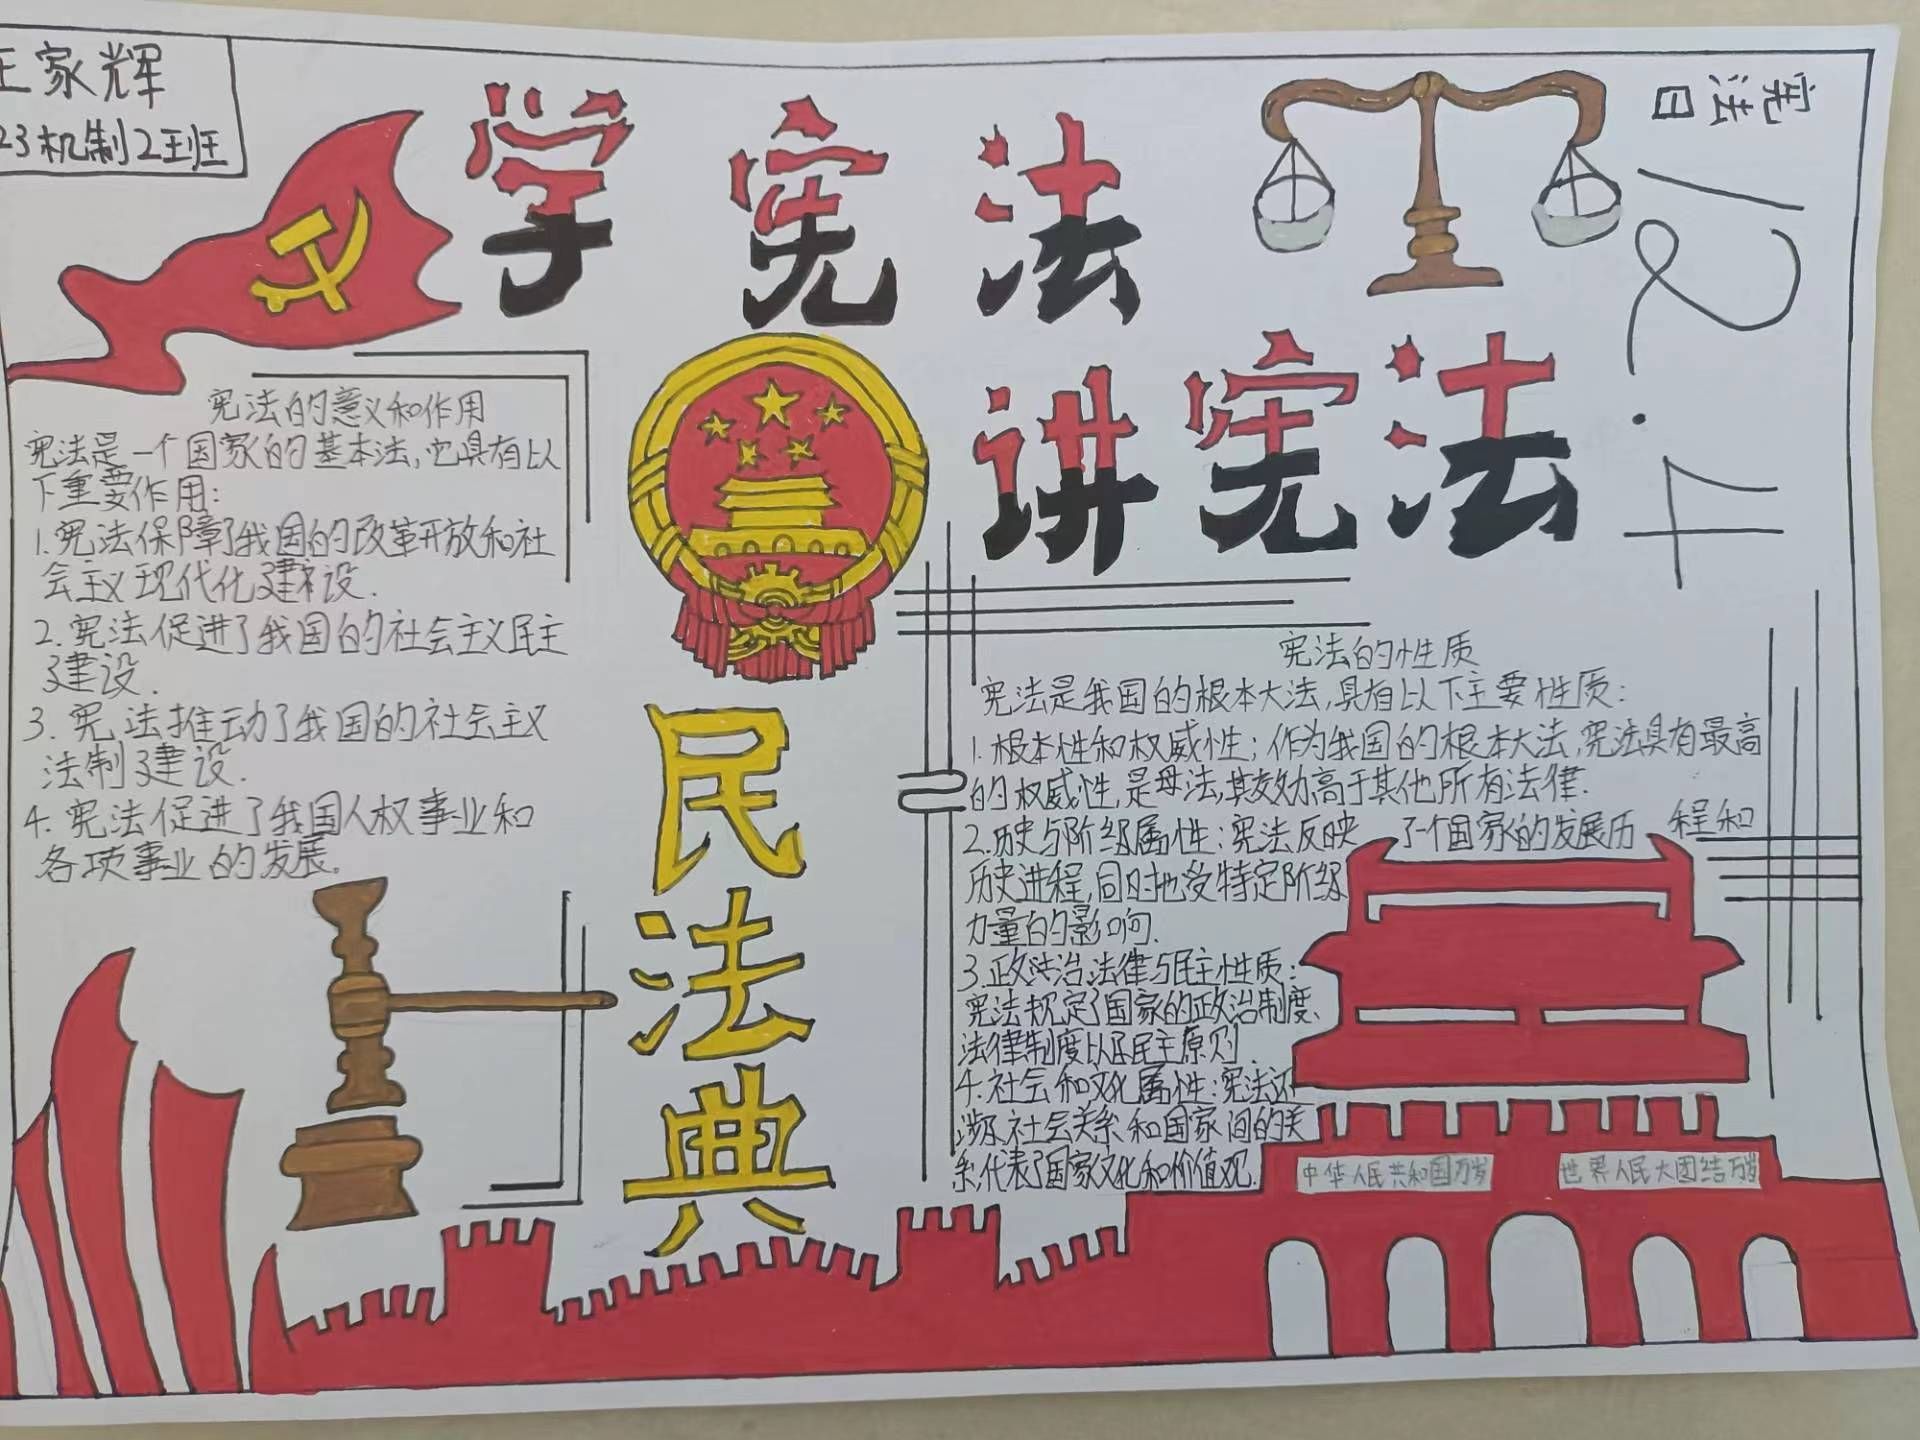 王家辉
23机制2班
学宪法
讲宪法
宪法日
12.4
宪法的意义和作用
宪法是一个国家的基本法,它具有以
下重要作用:
1.宪法保障了我国的改革开放和社
会主义现代化建设.
2.宪法促进了我国的社会主义民主
建设.
3.宪法推动了我国的社会主义
法制建设.
4.宪法促进了我国人权事业和
各项事业的发展.
民法典
宪法的性质
宪法是我国的根本大法,具有以下主要性质:
1.根本性和权威性;作为我国的根本大法,宪法具有最高
的权威性,是母法,其效力高于其他所有法律.
2.历史与阶级属性:宪法反映了一个国家的发展历程和
历史进程,同时也受特定阶级
力量的影响.
3.政法治,法律与民主性质:
宪法规定了国家的政治制度、
法律制度以及民主原则.
4.社会和文化属性:宪法还
涉及社会关系和国家间的关
系,代表了国家文化和价值观.
中华人民共和国万岁
世界人民大团结万岁